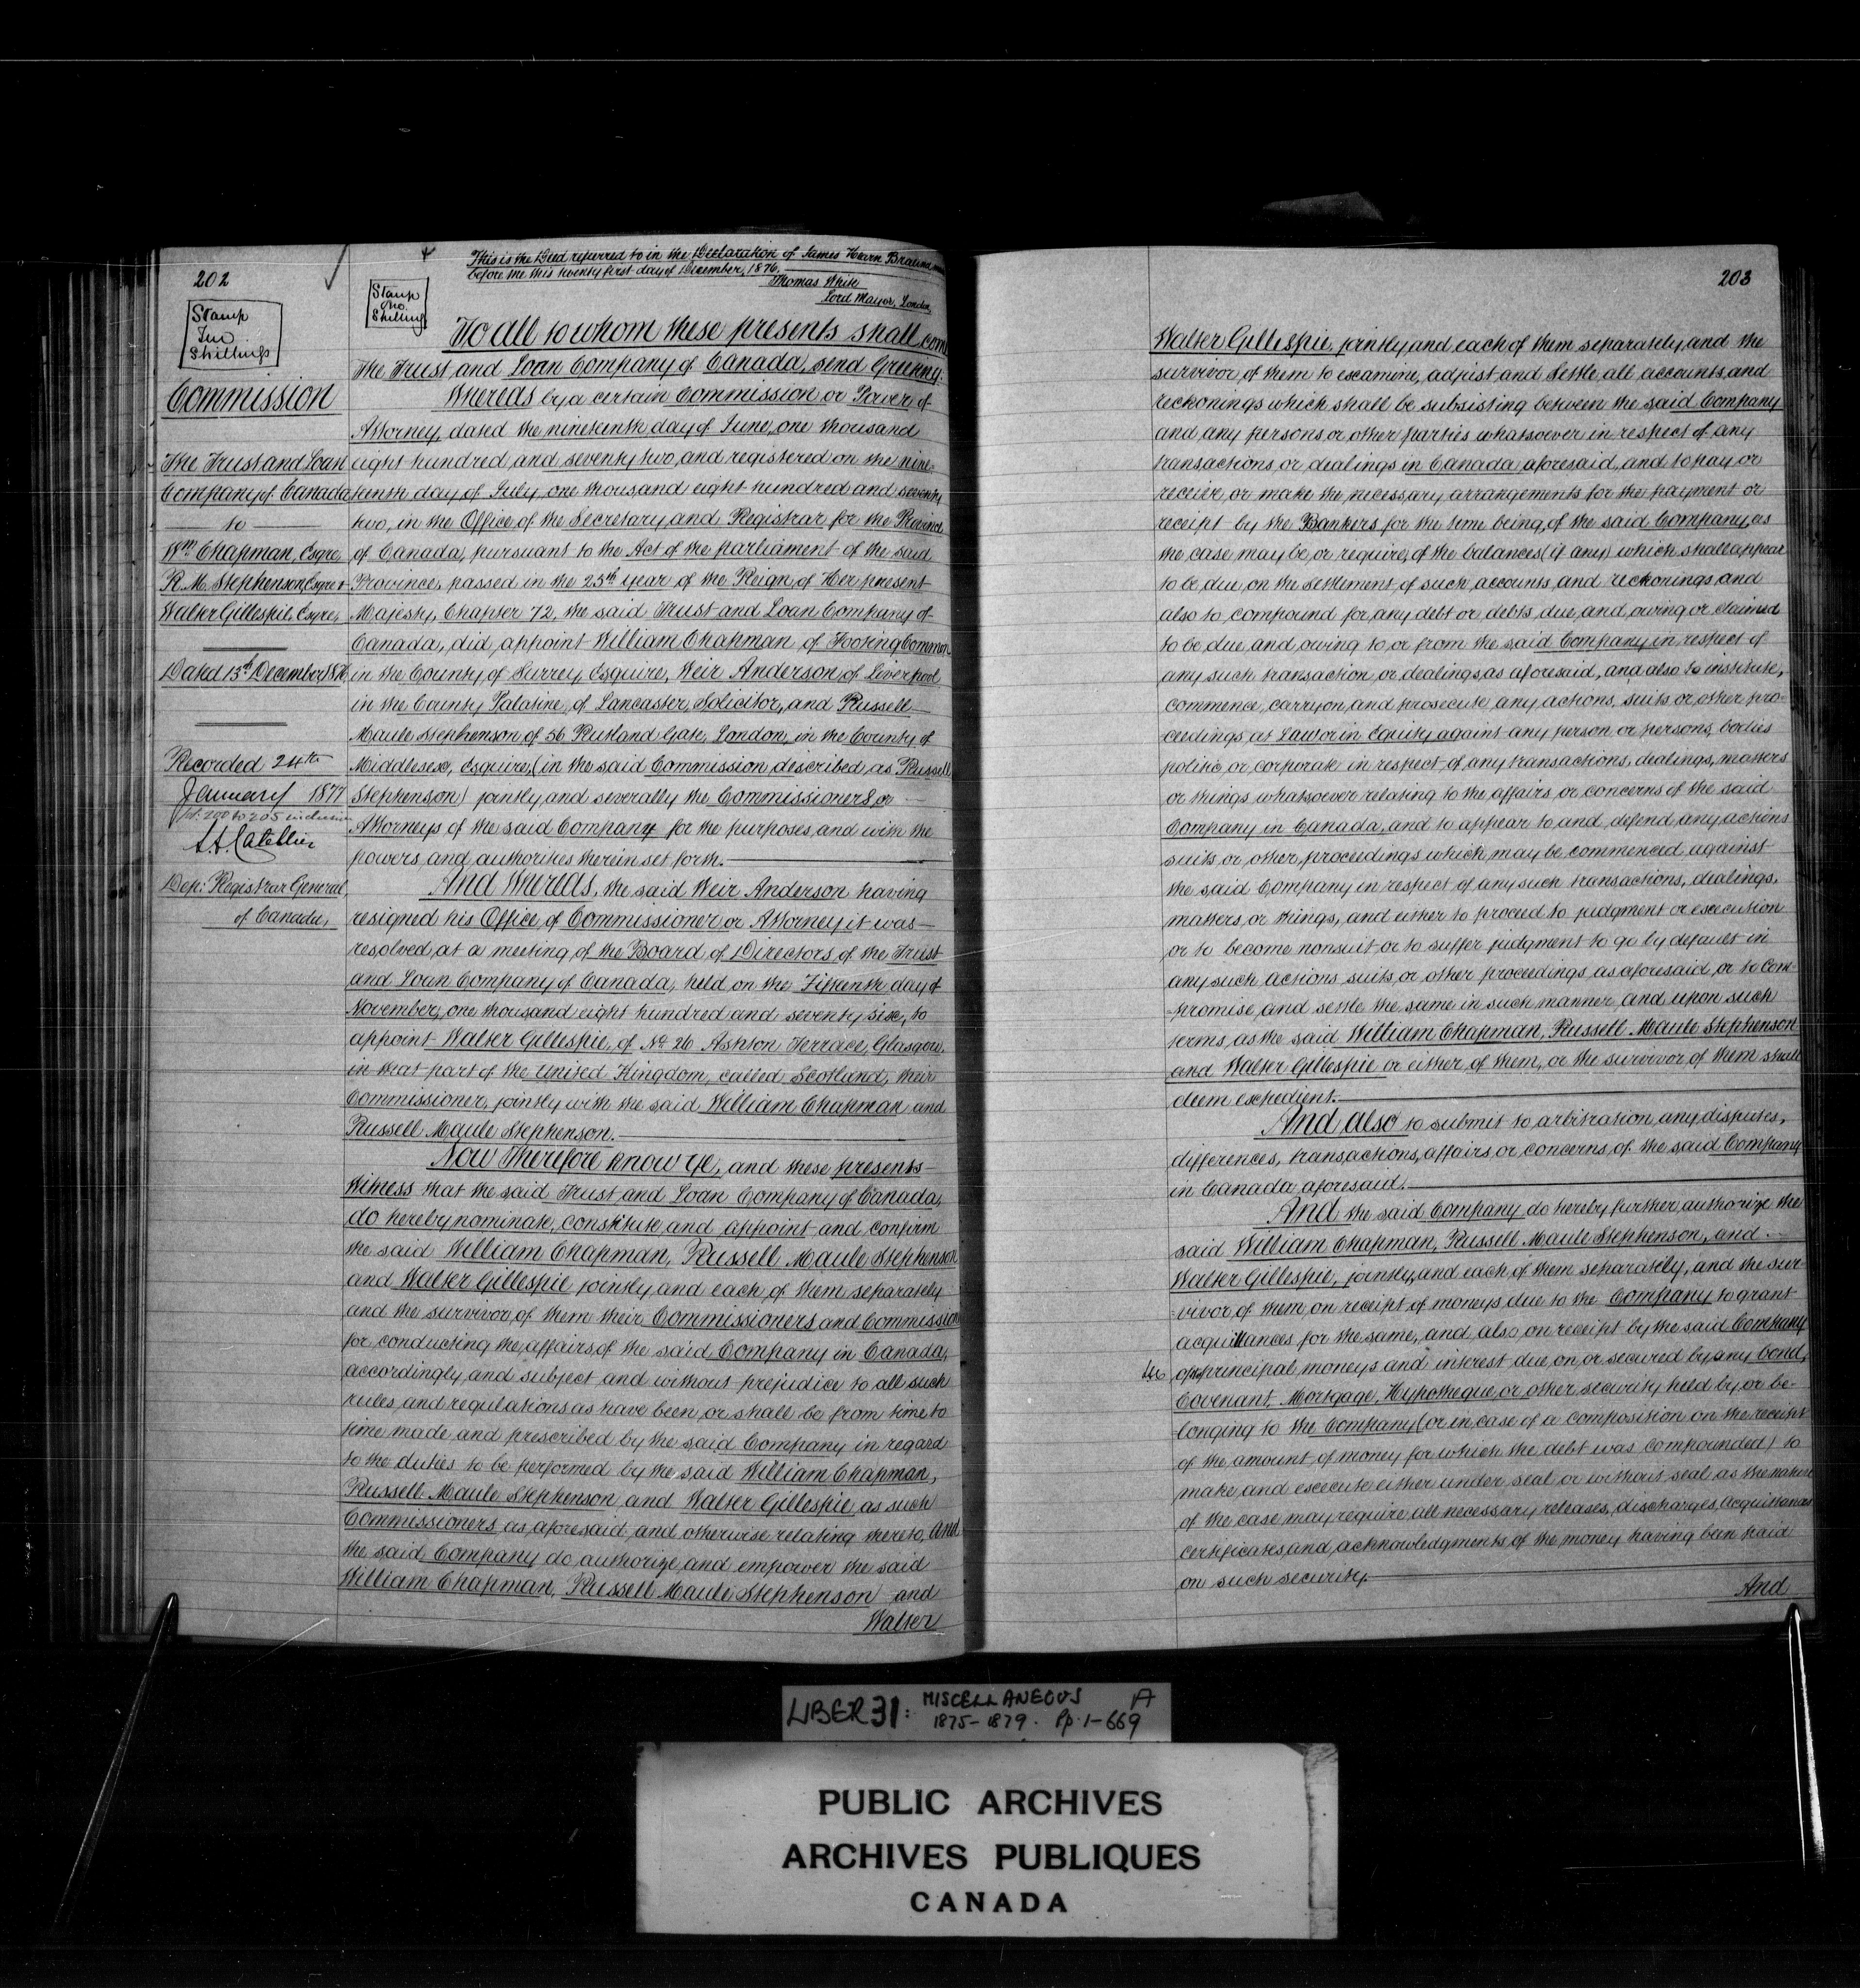 202
Stamp
Ten
Shillings
Commission
The Trust and Loan
Company of Canada
to
Wm Chapman, Esqre
R. M. Stephenson, Esqre &
Walter Gillespie, Esqre,
Dated 13th December 1876
Recorded 24th
January 1877
Dep: Registrar General,
of Canada,
This is the Deed referred to in the Declaration of James Hearn
before me this twenty first day of December, 1876.
Thomas White
Lord Mayor, London
Stamp
Shilling
To all to whom these presents shall come
The Trust and Loan Company of Canada, send Greeting.
Whereas by a certain Commission or Power of
Attorney, dated the nineteenth day of June, one thousand
eight hundred and seventy two, and registered on the nine-
teenth day of July, one thousand eight hundred and seventy
two, in the Office of the Secretary and Registrar for the Province
of Canada, pursuant to the Act of the parliament of the said
Province, passed in the 25th year of the Reign of Her present
Majesty, Chapter 72, the said Trust and Loan Company of
Canada, did appoint William Chapman of Tooting Common
in the County of Surrey, Esquire, Weir Anderson of Liverpool
in the County Palatine of Lancaster, Solicitor, and Russell
Maule Stephenson of 56 Rutland Gate, London, in the County of
Middlesex, Esquire, (in the said Commission described as Russell
Stephenson) jointly and severally the Commissioners, or
Attorneys of the said Company for the purposes, and with the
powers and authorities therein set forth.
And Whereas, the said Weir Anderson having
resigned his Office of Commissioner or Attorney it was
resolved, at a meeting of the Board of Directors of the Trust
and Loan Company of Canada, held on the Fifteenth day of
November, one thousand eight hundred and seventy six, to
appoint Walter Gillespie, of No 26 Ashton Terrace, Glasgow,
in that part of the United Kingdom, called Scotland, their
Commissioner, jointly with the said William Chapman and
Russell Maule Stephenson.
Now Therefore know ye, and these presents
Witness that the said Trust and Loan Company of Canada,
do hereby nominate, constitute and appoint and confirm
the said William Chapman, Russell Maule Stephenson
and Walter Gillespie jointly and each of them separately
and the survivor of them their Commissioners and Commission
for conducting the affairs of the said Company in Canada,
accordingly and subject and without prejudice to all such
rules and regulations as have been or shall be from time to
time made and prescribed by the said Company in regard
to the duties to be performed by the said William Chapman,
Russell Maule Stephenson and Walter Gillespie, as such
Commissioners as aforesaid, and otherwise relating thereto, And
the said Company do authorize and empower the said
William Chapman, Russell Maule Stephenson and
Walter
203
Walter Gillespie, jointly and each of them separately and the
survivor of them to examine, adjust and settle all accounts and
reckonings which shall be subsisting between the said Company
and any persons or other parties whatsoever in respect of any
transactions or dealings in Canada aforesaid, and to pay or
receive, or make the necessary arrangements for the payment or
receipt by the Bankers for the time being, of the said Company, as
the case may be, or require, of the balances (if any) which shall appear
to be due, on the settlement of such accounts and reckonings, and
also to compound for any debt or debts due, and owing or claimed
to be due and owing to or from the said Company in respect of
any such transaction or dealings, as aforesaid, and also to institute,
commence, carry on, and prosecute any actions, suits or other pro-
ceedings at Law or in Equity against any person or persons, bodies
politic or corporate in respect of any transactions, dealings, matters
or things whatsoever relating to the affairs or concerns of the said
Company in Canada, and to appear to and defend any actions
suits or other proceedings which may be commenced against
the said Company in respect of any such transactions, dealings,
matters or things, and either to proceed to judgment or execution
or to become nonsuit or to suffer judgment to go by default in
any such actions suits or other proceedings, as aforesaid, or to com-
-promise and settle the same in such manner and upon such
terms, as the said William Chapman, Russell Maule Stephenson
and Walter Gillespie or either of them, or the survivor of them shall
deem expedient.
And also to submit to arbitration any disputes,
differences, transactions, affairs or concerns of the said Company
in Canada aforesaid.
And the said Company do hereby further authorize the
said William Chapman, Russell Maule Stephenson, and
Walter Gillespie, jointly, and each of them separately, and the sur-
-vivor of them on receipt of moneys due to the Company to grant
acquittances for the same, and also on receipt by the said Company
of principal moneys and interest due, on or secured by any bond,
Covenant, Mortgage, Hypotheque, or other security held by or be-
-longing to the Company (or in case of a composition on the receipt
of the amount of money for which the debt was compounded) to
make and execute either under seal or without seal as the nature
of the case may require, all necessary releases, discharges, acquittances
certificates, and acknowledgments of the money having been paid
on such security.
And
LIBER 31: MISCELLANEOUS
1875-1879. Pp. 1-669
PUBLIC ARCHIVES
ARCHIVES PUBLIQUES
CANADA